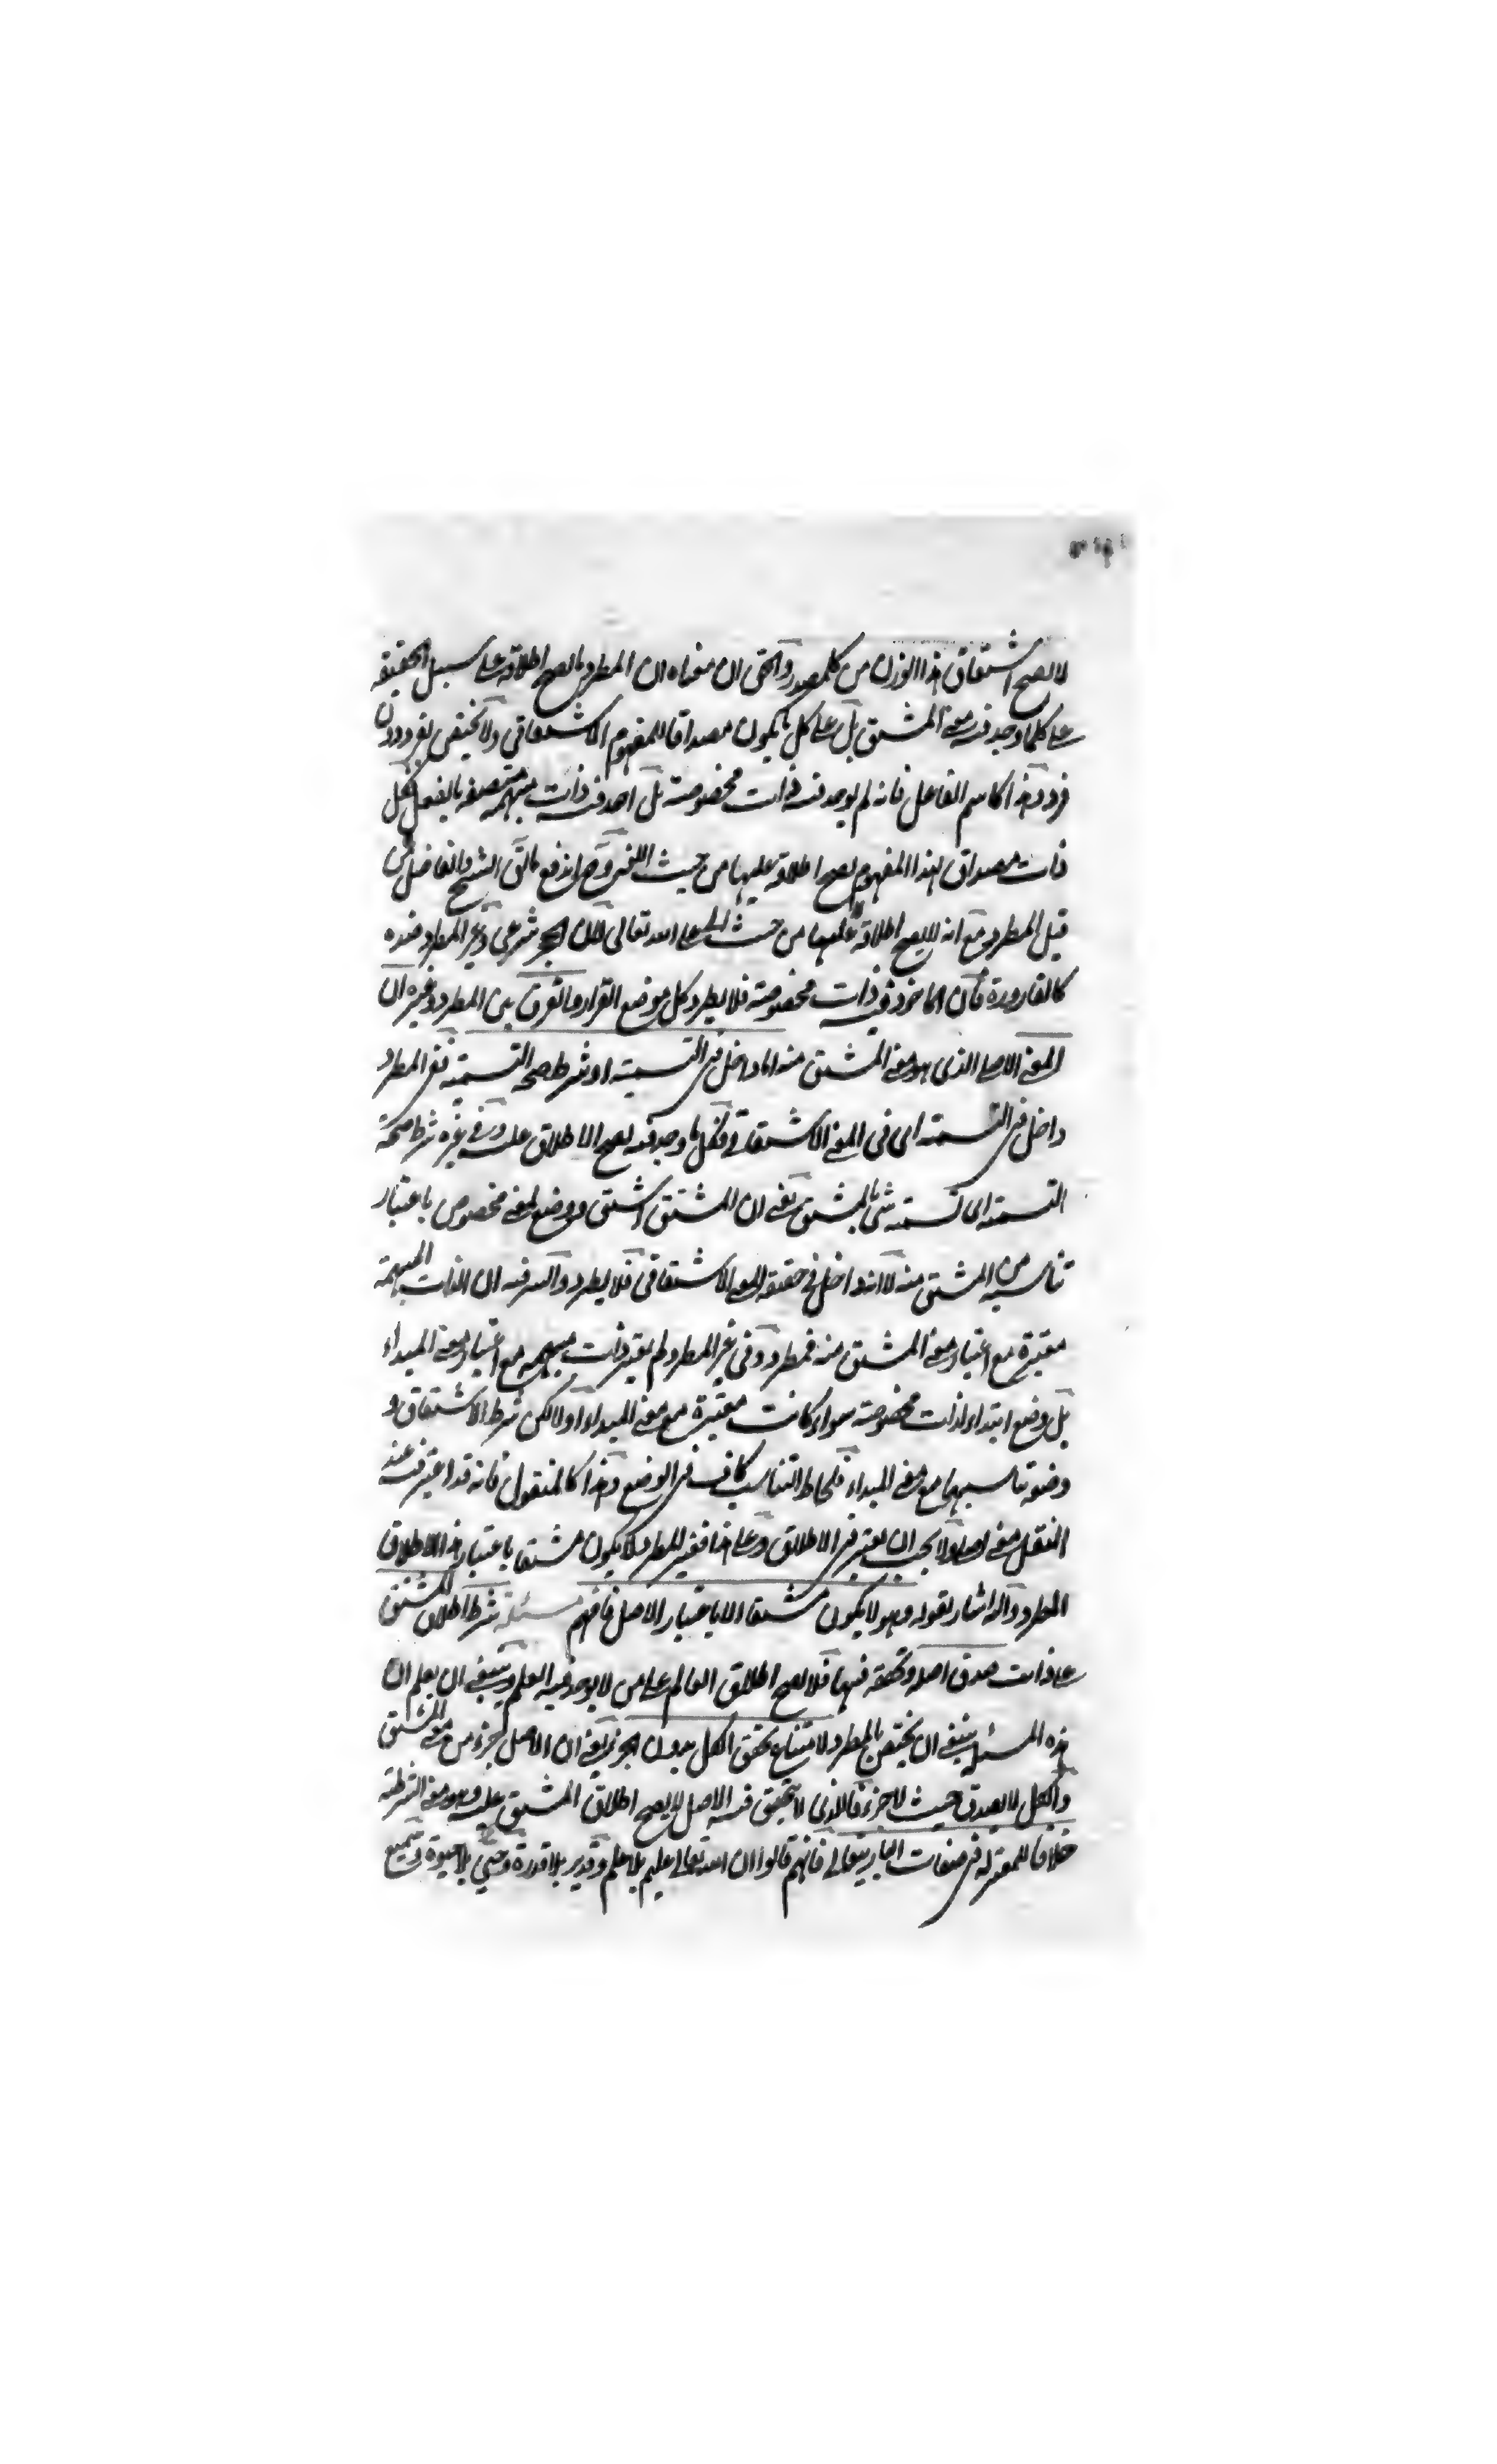 لا يصح اشتقاق هذا الوزن من كل مصدر والحق ان معناه ان المطرد ما يصح اطلاقه على سبيل الحقيقة
على كلما وجد فيه معنى المشتق بل على كل ما يكون مصداقا للمفهوم الاشتقاقي ولا يختص بفرد دون
فرد وهذا كاسم الفاعل فانه لم يوجد فيه ذات مخصوصة بل اخذ فيه ذات مبهمة متصفة بالفعل فكل
ذات مصداق لهذا المفهوم يصح اطلاقه عليها من حيث اللغة وح اندفع ما ق الشيخ والفاضل من
قبيل المطرد مع انه لا يصح اطلاقه عليها من حيث على الله تعالى لان الحجر شرعي وغير المطرد ضده
كالقارورة فان الماخوذ فيه ذات مخصوصة فلا يطرد كل موضع القرار والفرق بين المطرد وغيره ان
المعنى الاصلي الذي هو معنى المشتق منه اما داخل في التسمية او شرط صحة التسمية ففي المطرد
داخل في التسمية اى في المعنى الاشتقاقي فكل ما وجد فيه يصح الاطلاق عليه وفي غيره شرط صحة
التسمية اى تسمية شئ بالمشتق يعنى ان المشتق اشتق ووضع لمعنى مخصوص باعتبار
تناسبه من المشتق منه لا انه داخل في حقيقة المعنى الاشتقاقي فلا يطرد والسر فيه ان الذات المبهمة
معتبرة مع اعتبار معنى المشتق منه فمطرد وفي غير المطرد لم يعتبر ذات مبهمة مع اعتبار معنى المبداء
بل وضع ابتداء لذات مخصوصة سواء كانت معتبرة مع معنى المبداء او لا لكن شرط الاشتقاق و
وضعه تناسبها مع معنى المبداء فلحاظ التناسب كاف في الوضع وهذا كالمنقول فانه قد اعتبر فيه عند
النقل معنى اصله ولا يجب ان يعتبر في الاطلاق وعلى هذا فغير المطرد لا يكون مشتقا باعتبار هذا الاطلاق
المطرد واليه اشار بقوله وهو لا يكون مشتقا الا باعتبار الاصل فافهم مسئلة شرط اطلاق المشتق
على ذات صدق اصله وتحققه فيها فلا يصح اطلاق العالم على من لا يوجد فيه العلم وينبغي ان يعلم ان
هذه المسئلة ينبغي ان يختص بالمطرد لامتناع تحقق الكل بدون الجزء يعنى ان الاصل جزء من معنى المشتق
والكل لا يصدق حيث لا جزء فالذي لا يتحقق فيه الاصل لا يصح اطلاق المشتق عليه وهو معنى الشرطية
خلافا للمعتزلة في صفات الباري تعالى فانهم قالوا ان الله تعالى عليم بلا علم وقدير بلا قدرة وحي بلا حيوة وسميع